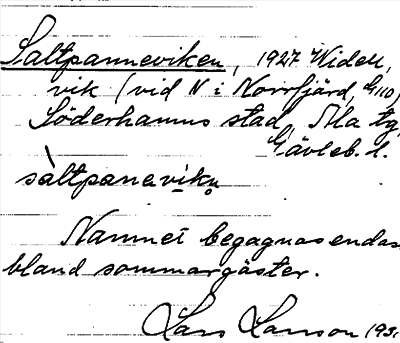 Saltpanneviken, 1927 Widell,
vik (vid N i Norrfjärd, G110)
Söderhamns stad, Ala tg
Gävleb. l.
sàltpanaviku̥
Namnet begagnas endas
bland sommargäster.
Lars Larsson 193